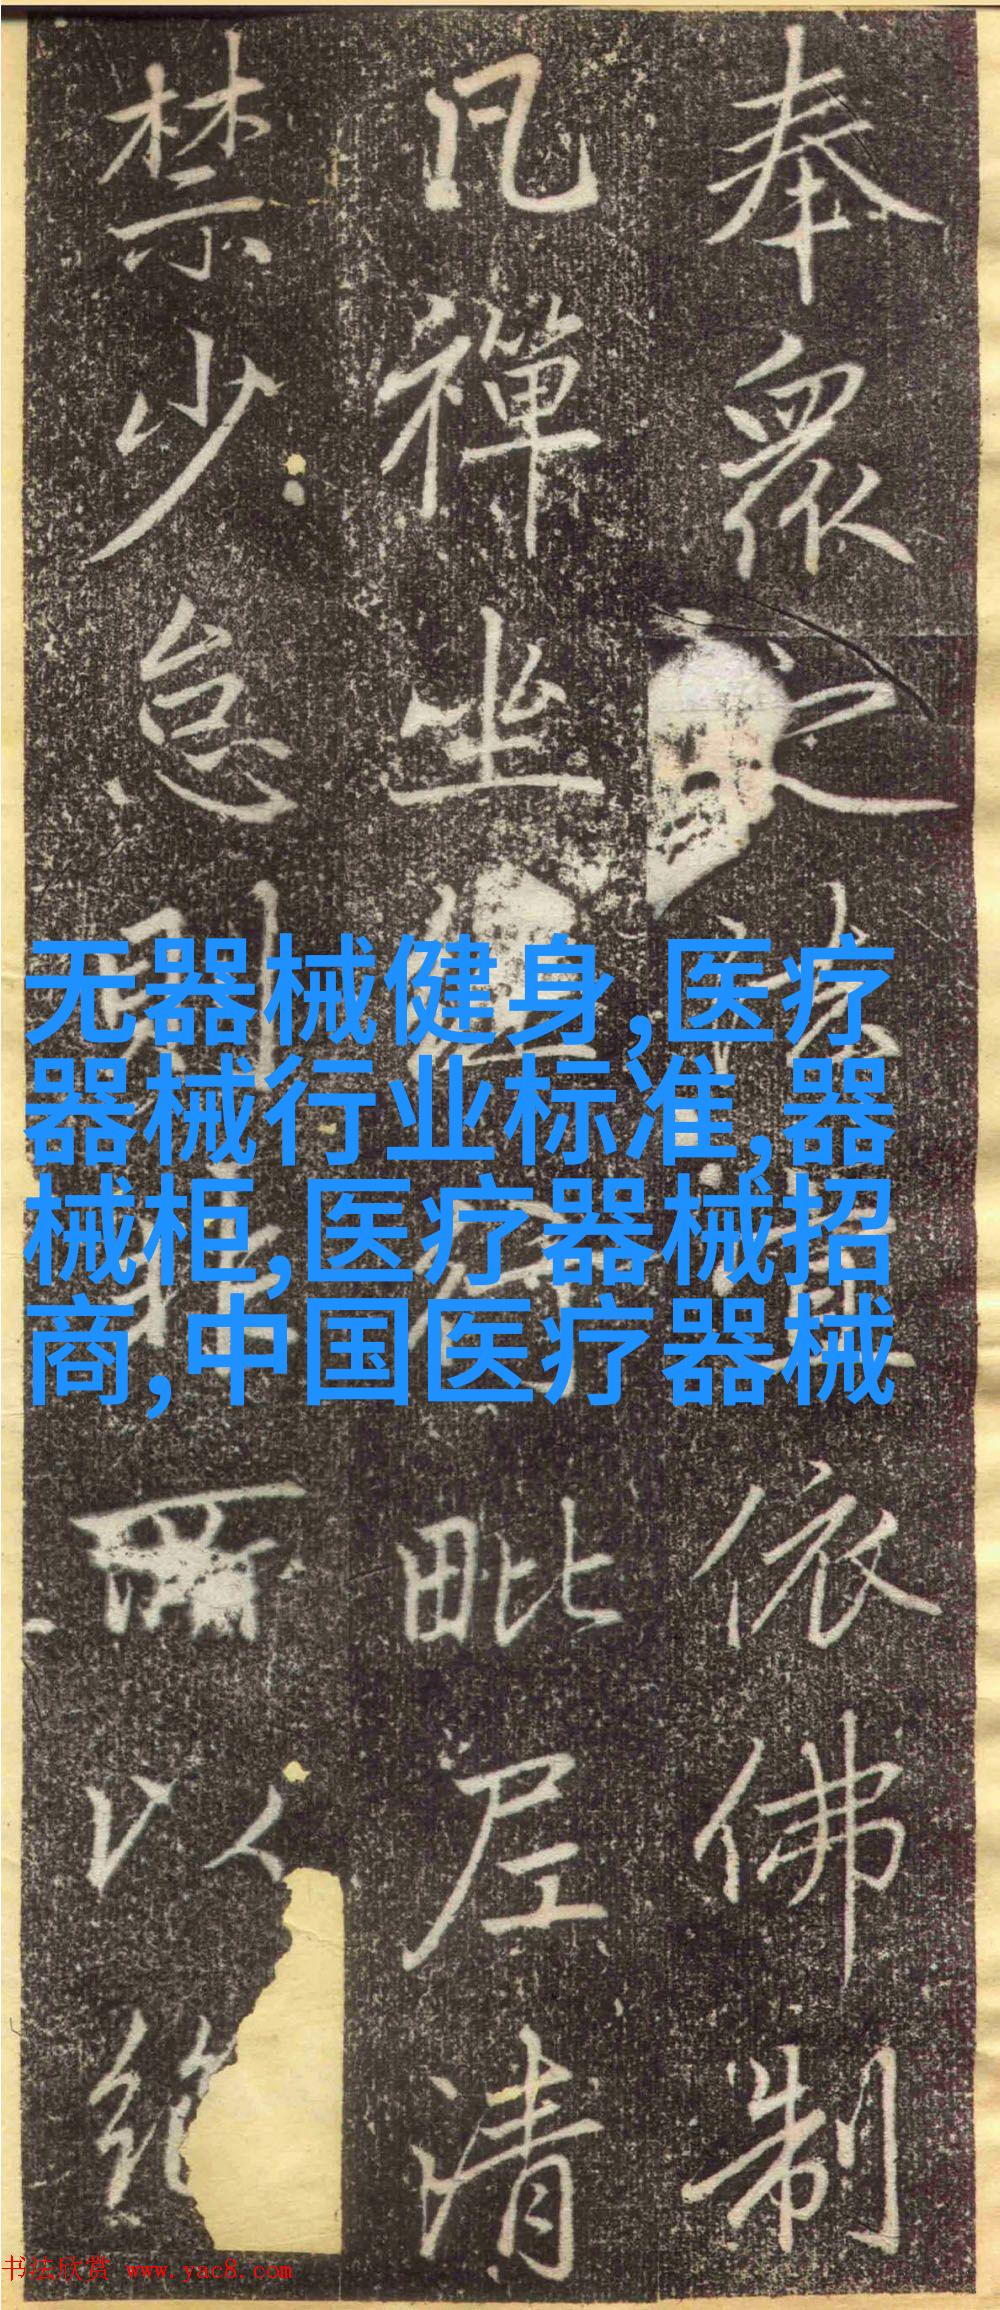 奉眾及法重依佛制
凡禪坐健行毗尼清
禁少怠則非所以
无器械健身,医疗
器械行业标准,器
械柜,医疗器械招
商,中国医疗器械
书法欣赏 www.yac8.com